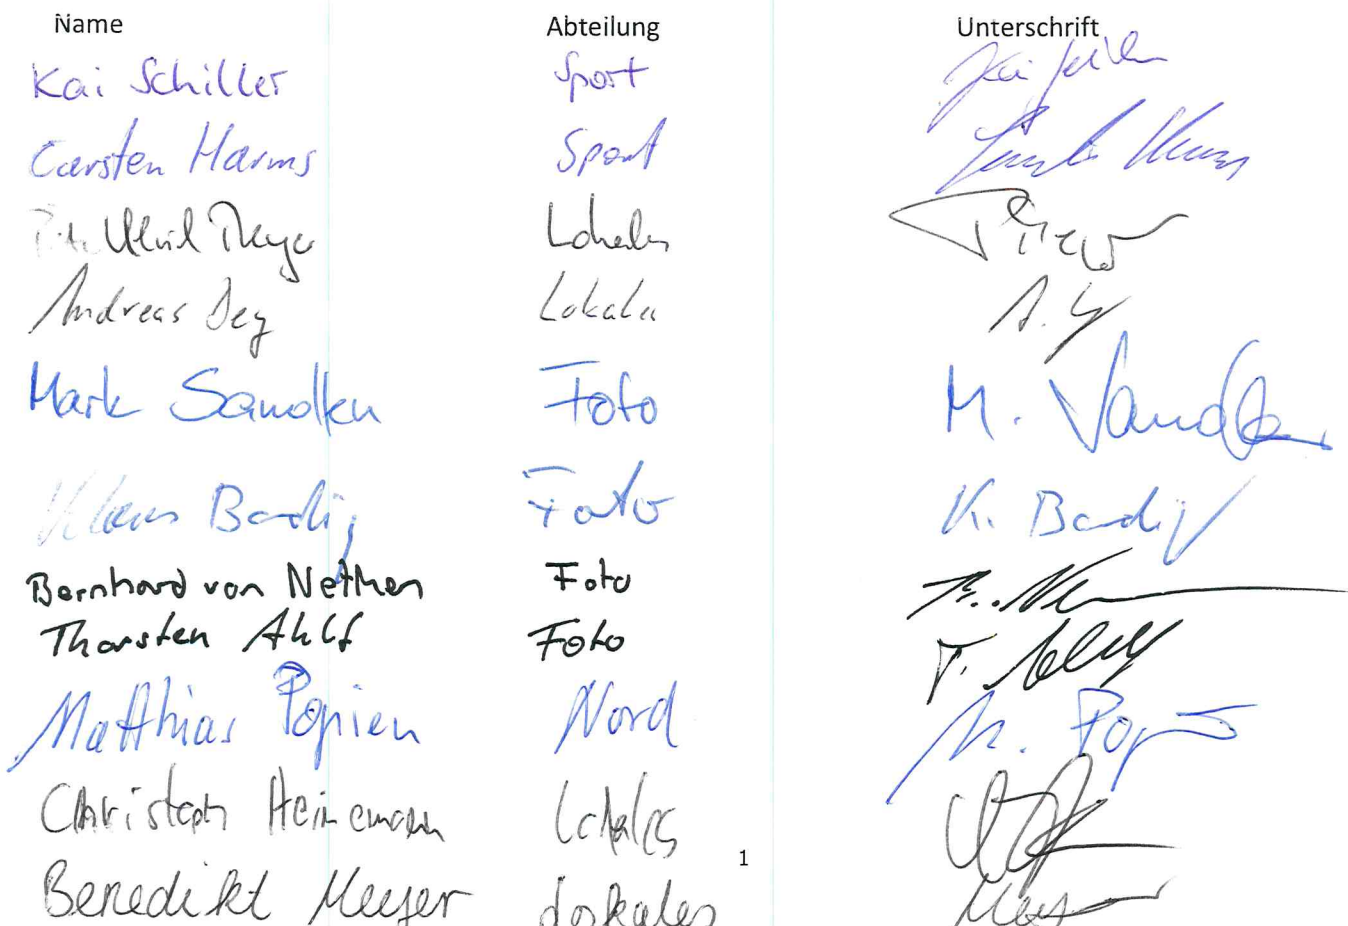 Name Abteilung Unterschrift
Kai Schiller Sport
Carsten Harms Sport
Ulrich Meyer Lokales
Andreas Dey Lokales A. Dey
Mark Sandten Foto M. Sandten
Klaus Bodig Foto K. Bodig
Bernhard von Nethen Foto
Thorsten Ahlf Foto T. Ahlf
Matthias Popien Nord M. Popien
Christoph Heinemann Lokales
1
Benedikt Meyer Lokales Meyer